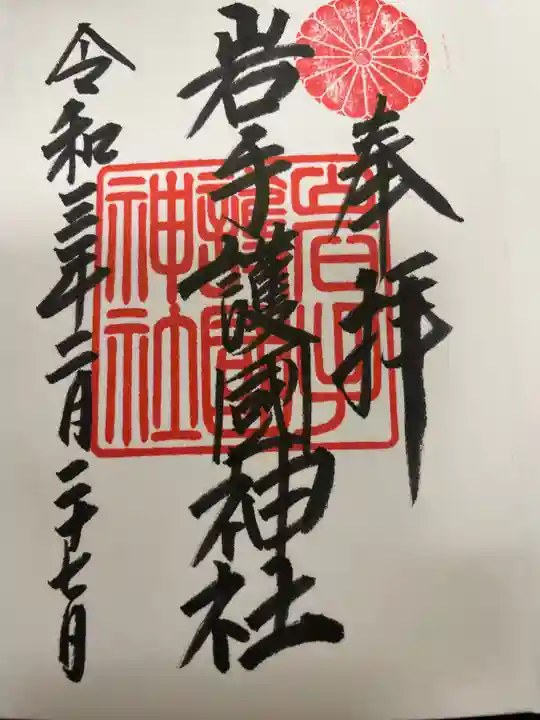 奉拝
岩手護國神社
岩手
護國
神社
令和三年二月二十七日